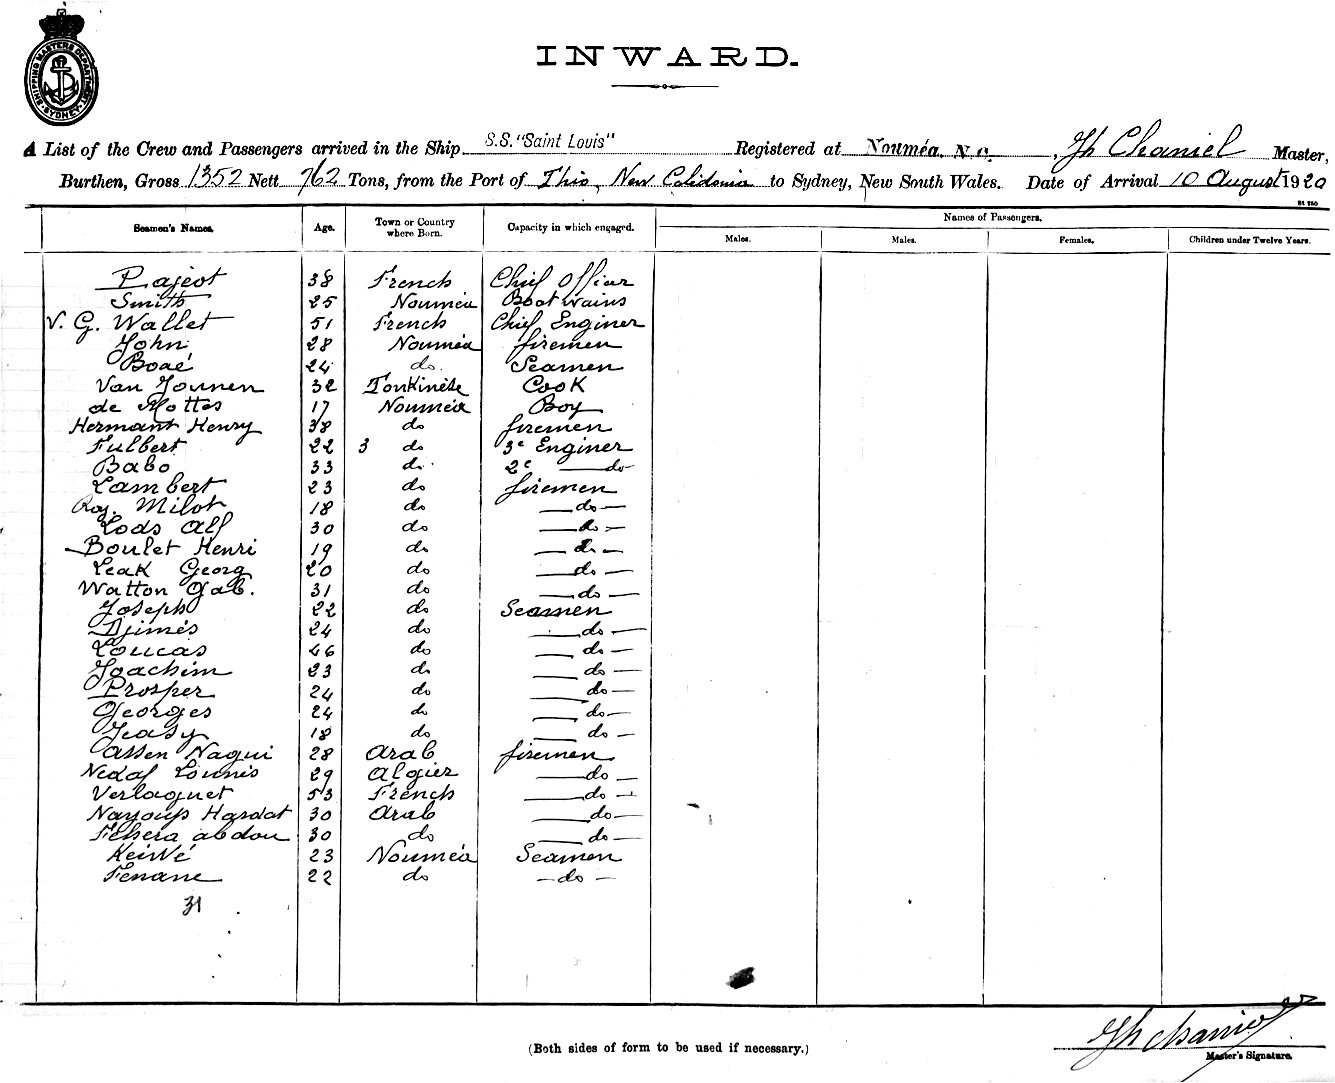 SHIPPING MASTERS DEPARTMENT SYDNEY
INWARD.
A List of the Crew and Passengers arrived in the Ship S.S. "Saint Louis" Registered at Nouméa, N.C. , Th Chaniel Master,
Burthen, Gross 1352 Nett 762 Tons, from the Port of Thio, New Calidonia to Sydney, New South Wales. Date of Arrival 10 August 1920
Seamen's Names. Age. Town or Country where Born. Capacity in which engaged. Names of Passengers.
Males. Males. Females. Children under Twelve Years.
Pajeot 38 French Chief Officer
Smith 25 Nouméa Boatwains
V. G. Wallet 51 French Chief Enginer
John 28 Nouméa firemen
Boaé 24 do. Seamen
Van Jounen 32 Tonkinése Cook
de Mottes 17 Nouméa Boy
Hermant Henry 38 do firemen
Fulbert 22 3 do 3e Enginer
Babo 33 do 2e do
Lambert 23 do firemen
Roj. Milot 18 do do
Lods Alf 30 do do
Boulet Henri 19 do do
Leak Georg 20 do do
Watton Gab. 31 do do
Joseph 22 do Seamen
Djimés 24 do do
Loucas 46 do do
Joachim 23 do do
Prosper 24 do do
Georges 24 do do
Jeasy 18 do do
Assen Nagui 28 Arab firemen
Nedaf Lounis 29 Algier do
Verlaguet 53 French do
Nayoup Hasdat 30 Arab do
Fehera abdou 30 do do
Keiwé 23 Nouméa Seamen
Fenane 22 do do
31
(Both sides of form to be used if necessary.)
Th Chaniel
Master's Signature.